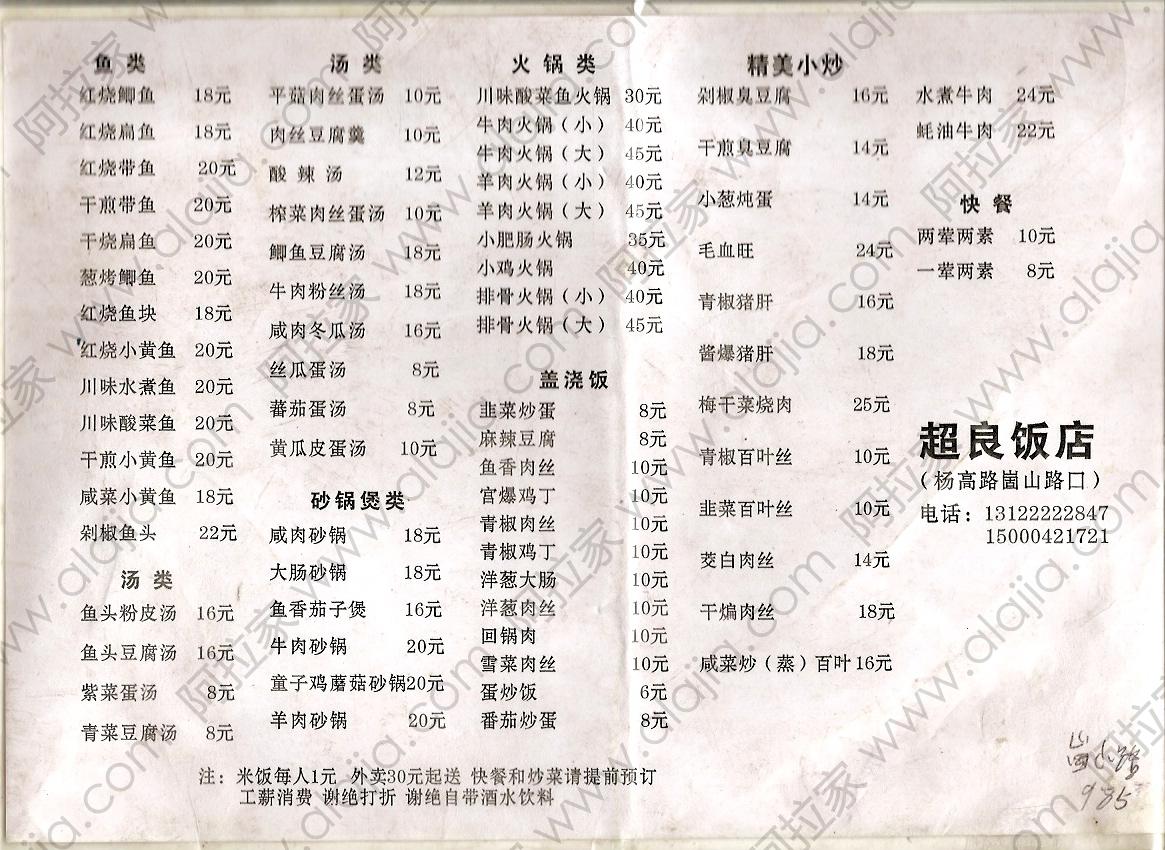 鱼 类
红烧鲫鱼 18元
红烧扁鱼 18元
红烧带鱼 20元
干煎带鱼 20元
干烧扁鱼 20元
葱烤鲫鱼 20元
红烧鱼块 18元
红烧小黄鱼 20元
川味水煮鱼 20元
川味酸菜鱼 20元
干煎小黄鱼 20元
咸菜小黄鱼 18元
剁椒鱼头 22元
汤 类
鱼头粉皮汤 16元
鱼头豆腐汤 16元
紫菜蛋汤 8元
青菜豆腐汤 8元
汤 类
平菇肉丝蛋汤 10元
肉丝豆腐羹 10元
酸 辣 汤 12元
榨菜肉丝蛋汤 10元
鲫鱼豆腐汤 18元
牛肉粉丝汤 18元
咸肉冬瓜汤 16元
丝瓜蛋汤 8元
蕃茄蛋汤 8元
黄瓜皮蛋汤 10元
砂锅煲类
咸肉砂锅 18元
大肠砂锅 18元
鱼香茄子煲 16元
牛肉砂锅 20元
童子鸡蘑菇砂锅20元
羊肉砂锅 20元
火 锅 类
川味酸菜鱼火锅 30元
牛肉火锅（小） 40元
牛肉火锅（大） 45元
羊肉火锅（小） 40元
羊肉火锅（大） 45元
小肥肠火锅 35元
小鸡火锅 40元
排骨火锅（小） 40元
排骨火锅（大） 45元
盖浇饭
韭菜炒蛋 8元
麻辣豆腐 8元
鱼香肉丝 10元
宫爆鸡丁 10元
青椒肉丝 10元
青椒鸡丁 10元
洋葱大肠 10元
洋葱肉丝 10元
回锅肉 10元
雪菜肉丝 10元
蛋炒饭 6元
番茄炒蛋 8元
精美小炒
剁椒臭豆腐 16元
干煎臭豆腐 14元
小葱炖蛋 14元
毛血旺 24元
青椒猪肝 16元
酱爆猪肝 18元
梅干菜烧肉 25元
青椒百叶丝 10元
韭菜百叶丝 10元
茭白肉丝 14元
干煸肉丝 18元
咸菜炒（蒸）百叶16元
水煮牛肉 24元
蚝油牛肉 22元
快 餐
两荤两素 10元
一荤两素 8元
超良饭店
（杨高路崮山路口）
电话：13122222847
15000421721
注：米饭每人1元 外卖30元起送 快餐和炒菜请提前预订
工薪消费 谢绝打折 谢绝自带酒水饮料
985
阿拉家 www.alajia.com